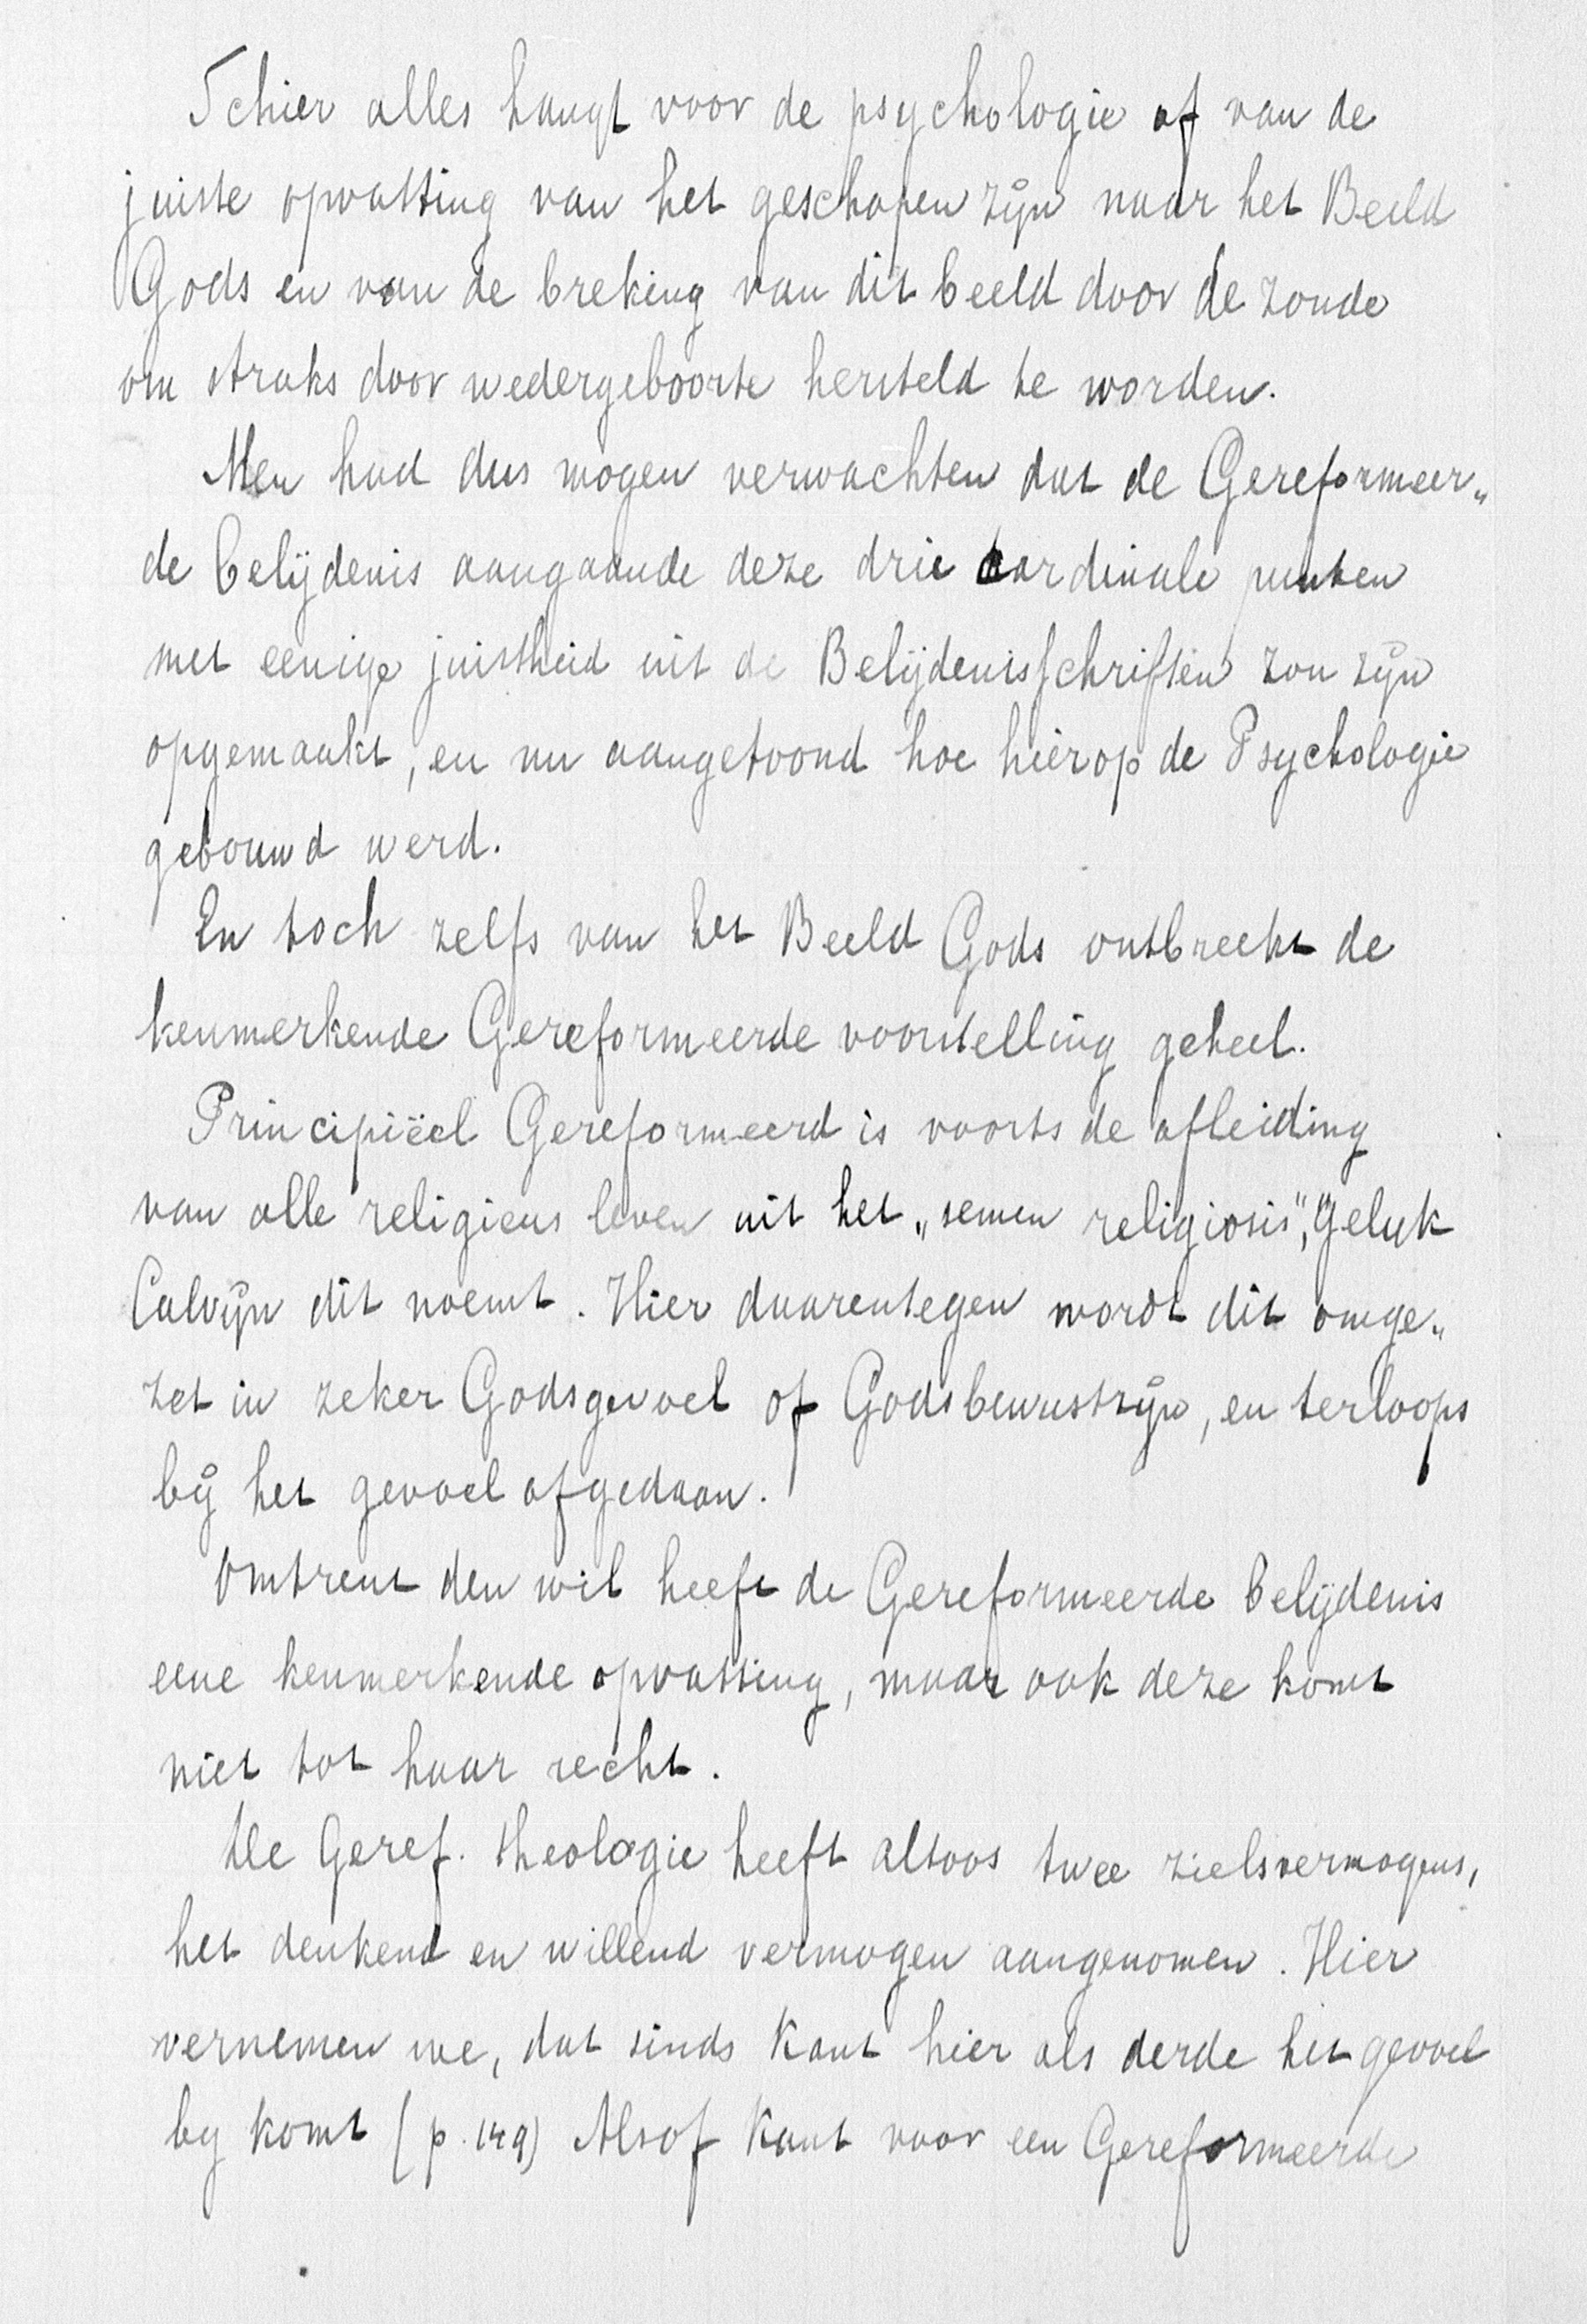 Schier alles hangt voor de psychologie af van de
juiste opvatting van het geschapen zijn naar het Beeld
Gods en van de breking van dit beeld door de zonde
om straks door wedergeboorte hersteld te worden.
Men had dus mogen verwachten dat de Gereformeer„
de belijdenis aangaande deze drie cardinale punten
met eenige juistheid uit de Belijdenisschriften zou zijn
opgemaakt, en nu aangetoond hoe hierop de Psychologie
gebouwd werd.
En toch zelfs van het Beeld Gods ontbreekt de
kenmerkende Gereformeerde voorstelling geheel.
Principiëel Gereformeerd is voorts de afleiding
van alle religieus leven uit het „semen religiosis", gelijk
Calvijn dit noemt. Hier daarentegen wordt dit omge„
zet in zeker Godsgevoel of Godsbewustzijn, en terloops
bij het gevoel afgedaan.
Omtrent den wil heeft de Gereformeerde belijdenis
eene kenmerkende opvatting, maar ook deze komt
niet tot haar recht.
De Geref. theologie heeft altoos twee zielsvermogens,
het denkend en willend vermogen aangenomen. Hier
vernemen we, dat sinds Kant hier als derde het gevoel
by komt (p. 149) Alsof Kant voor een Gereformeerde